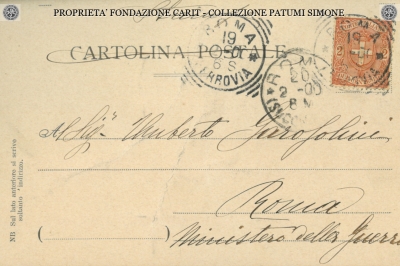 PROPRIETA' FONDAZIONE CARIT - COLLEZIONE PATUMI SIMONE
ROMA
19
6 S
FERROVIA
CARTOLINA POSTALE
ROMA
20
2 - 00
8 M
ROMA
19
FERROVIA
2
All Sig. Umberto Garofolini
Roma
Ministero della Guerra
NB Sul lato anteriore si scrive
soltanto l'indirizzo.